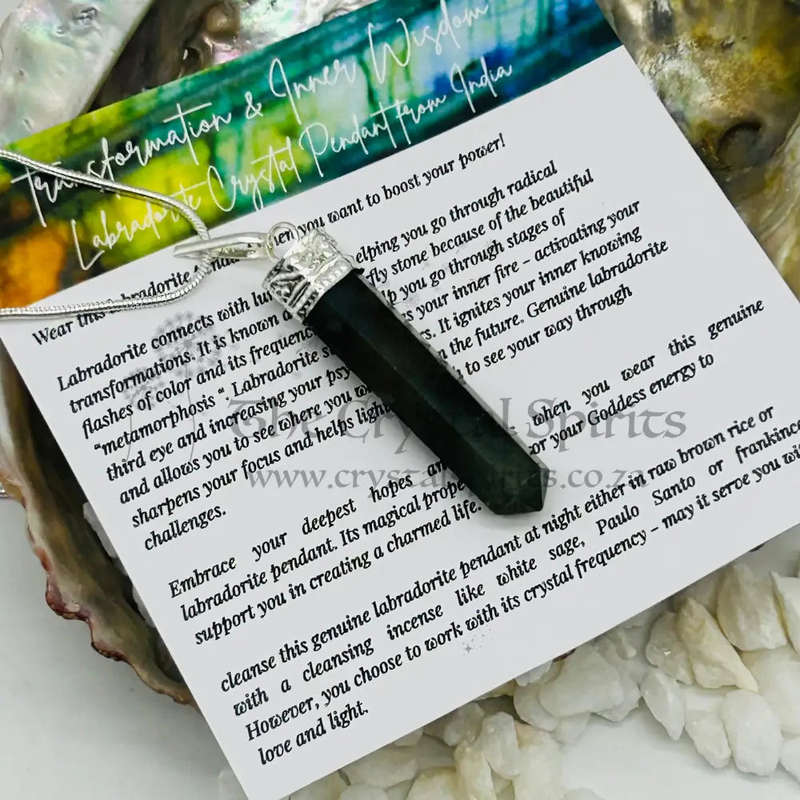 Transformation & Inner Wisdom
Labradorite Crystal Pendant from India
Wear this labradorite when you want to boost your power!
Labradorite connects with helping you go through radical
transformations. It is known stone because of the beautiful
flashes of color and its you go through stages of
"metamorphosis". Labradorite your inner fire – activating your
third eye and increasing your It ignites your inner knowing
and allows you to see where you the future. Genuine labradorite
sharpens your focus and helps to see your way through
challenges.
Embrace your deepest hopes when you wear this genuine
labradorite pendant. Its magical or your Goddess energy to
support you in creating a charmed life.
cleanse this genuine labradorite pendant at night either in raw brown rice or
with a cleansing incense like white sage, Paulo Santo or
However, you choose to work with its crystal frequency – may it serve you
love and light.
The Crystal Spirits
www.crystalspirits.co.za